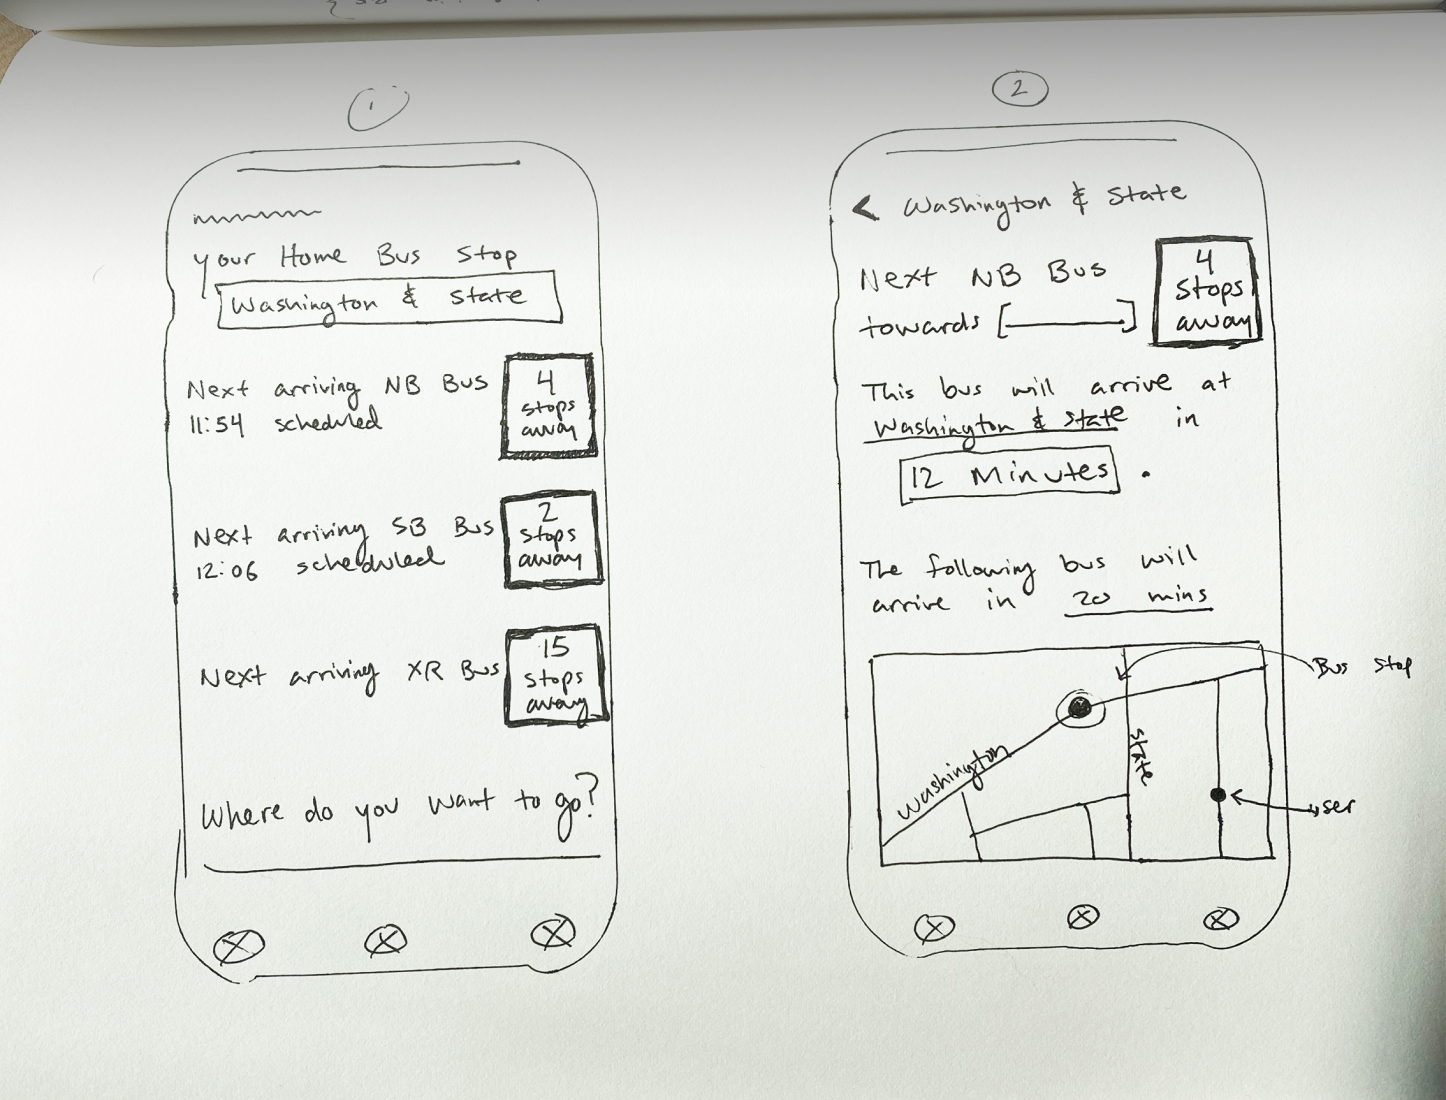 1
your Home Bus Stop
Washington & State
Next arriving NB Bus
11:54 scheduled
4
stops
away
Next arriving SB Bus
12:06 scheduled
2
stops
away
Next arriving XR Bus
15
stops
away
Where do you want to go?
2
< Washington & State
Next NB Bus
towards [ ]
4
stops
away
This bus will arrive at
Washington & State in
12 Minutes .
The following bus will
arrive in 20 mins
Bus Stop
Washington
State
user